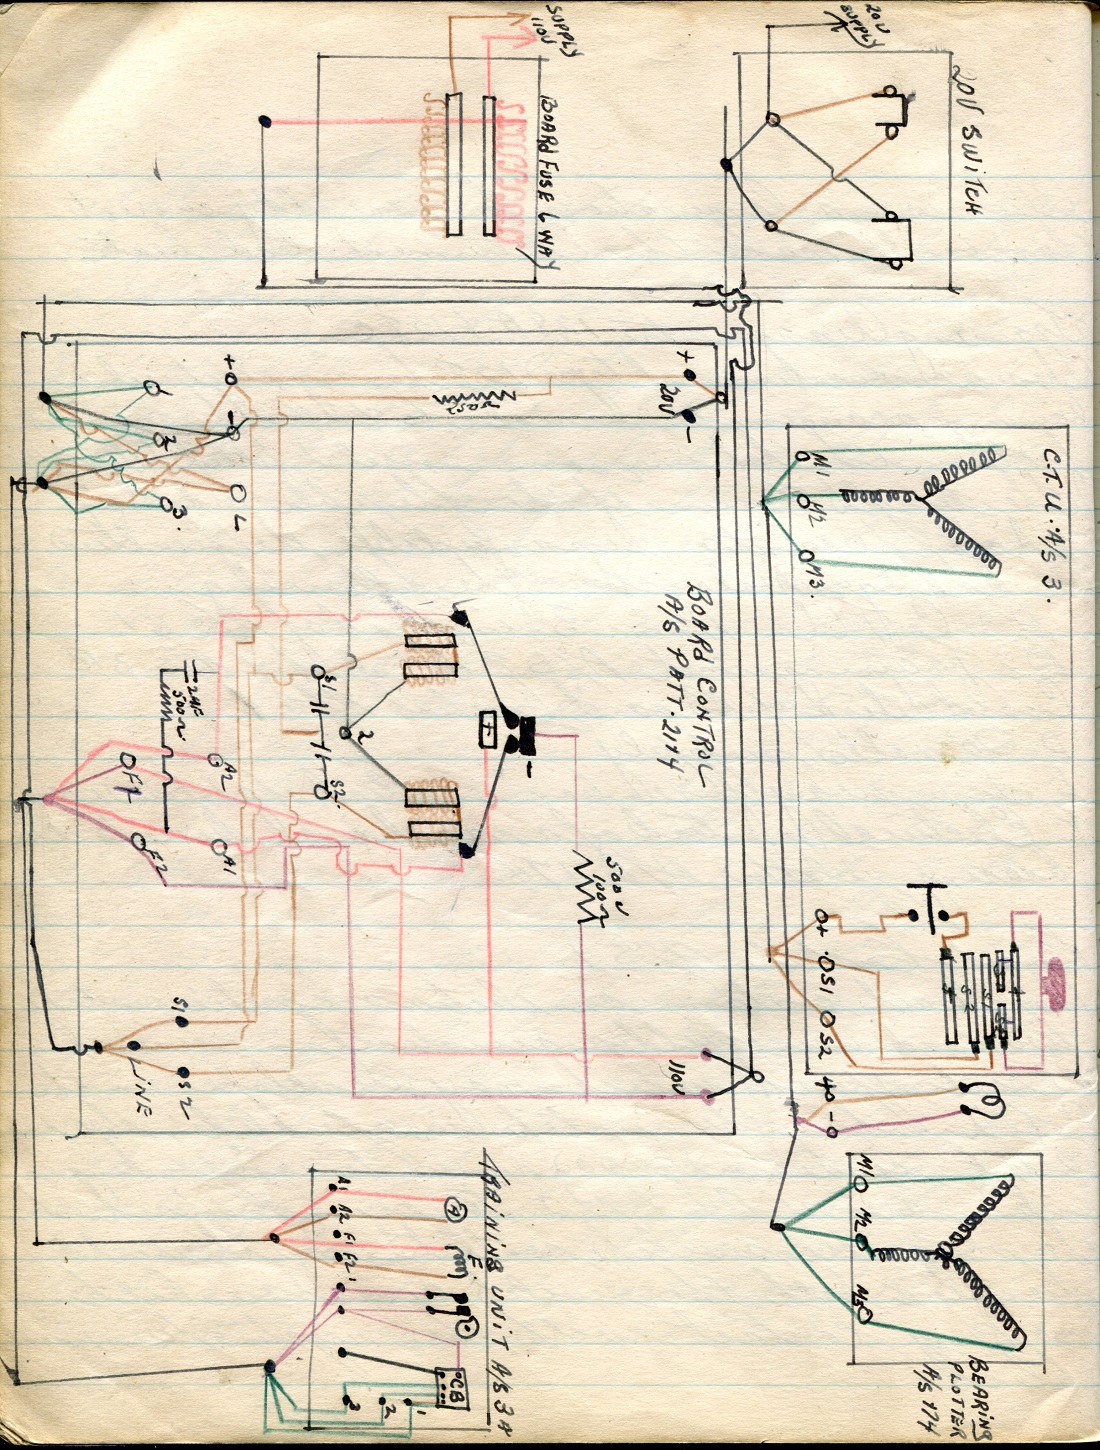 SUPPLY
110V
20V
SUPPLY
20V SWITCH
BOARD FUSE 6 WAY
+
-
+
20V
-
1
2
3.
4
C.T.U. A/S 3.
M1
M2
M3.
BOARD CONTROL
A/S PATT. 2114
S1
2
S2.
+
-
2MF
500~
A2
F1
A1
F2
500V
100~
0+
S1
S2
40
-
S1
LINE
S2
110V
TRAINING UNIT A/S 3A
A1
A2
F1
F2
F.
CB
1
2
3
BEARING
PLOTTER
A/S 174
M1
M2
M3